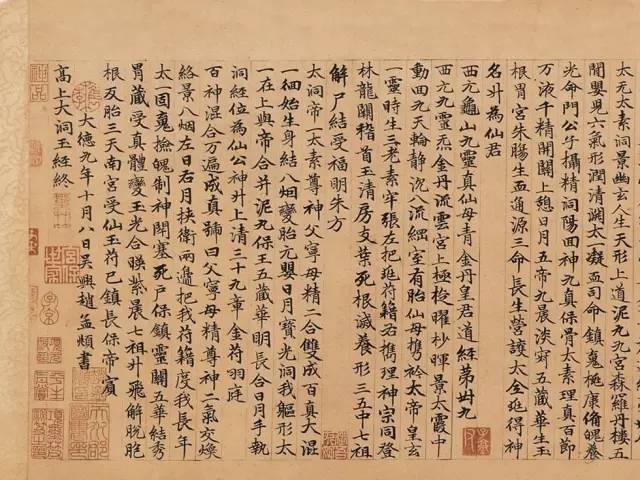 上道泥丸九宮森羅丹樓五
關嬰兒六氣形潤清淵太一凝玉司命鎮嵬梃康脩魄養
光命門公子攝精洞陽回神九真保骨太素理真百節
万液千精開關上憩日月五帝九晨淡寂五藏華生玉
根胃宮朱腸生血通源三命長生營護太全延得神
名升為仙君
西元龜山九靈真仙母青金丹皇君道經第卅九
西元九靈炁金丹流雲宮上極梭曜杪暉景太霞中
動回九天輪靜沉八流細室有胎仙母攜衿太帝皇玄
一靈時生三老素牢張左把延符籍右攜理神宗同登
林龍關稽首玉清房支葉死根滅養形三五中七祖
解尸結受福明朱方
太洞帝一太素尊神父寧母精二合雙成百真大混
一徊始生身結八烟變胎元嬰日月寶光洞我軀形太
一在上與帝合并泥丸保玉五藏華明長合日月手執
洞經位為仙公神升上清三十九章金符羽庭
百神混合万遍成真號曰父寧母精尊神二氣交煥
絡景八烟左日右月挾衛兩邊把我符籍度我長年
太一固嵬撿魄制神閉塞死戶保鎮靈關五華結秀
胃藏受真體變玉光合暎紫晨七祖升飛解脫胞
根及胎三天南宮受仙玉符已鎮長保帝賓
大德九年十月八日吳興趙孟頫書
高上大洞玉經終